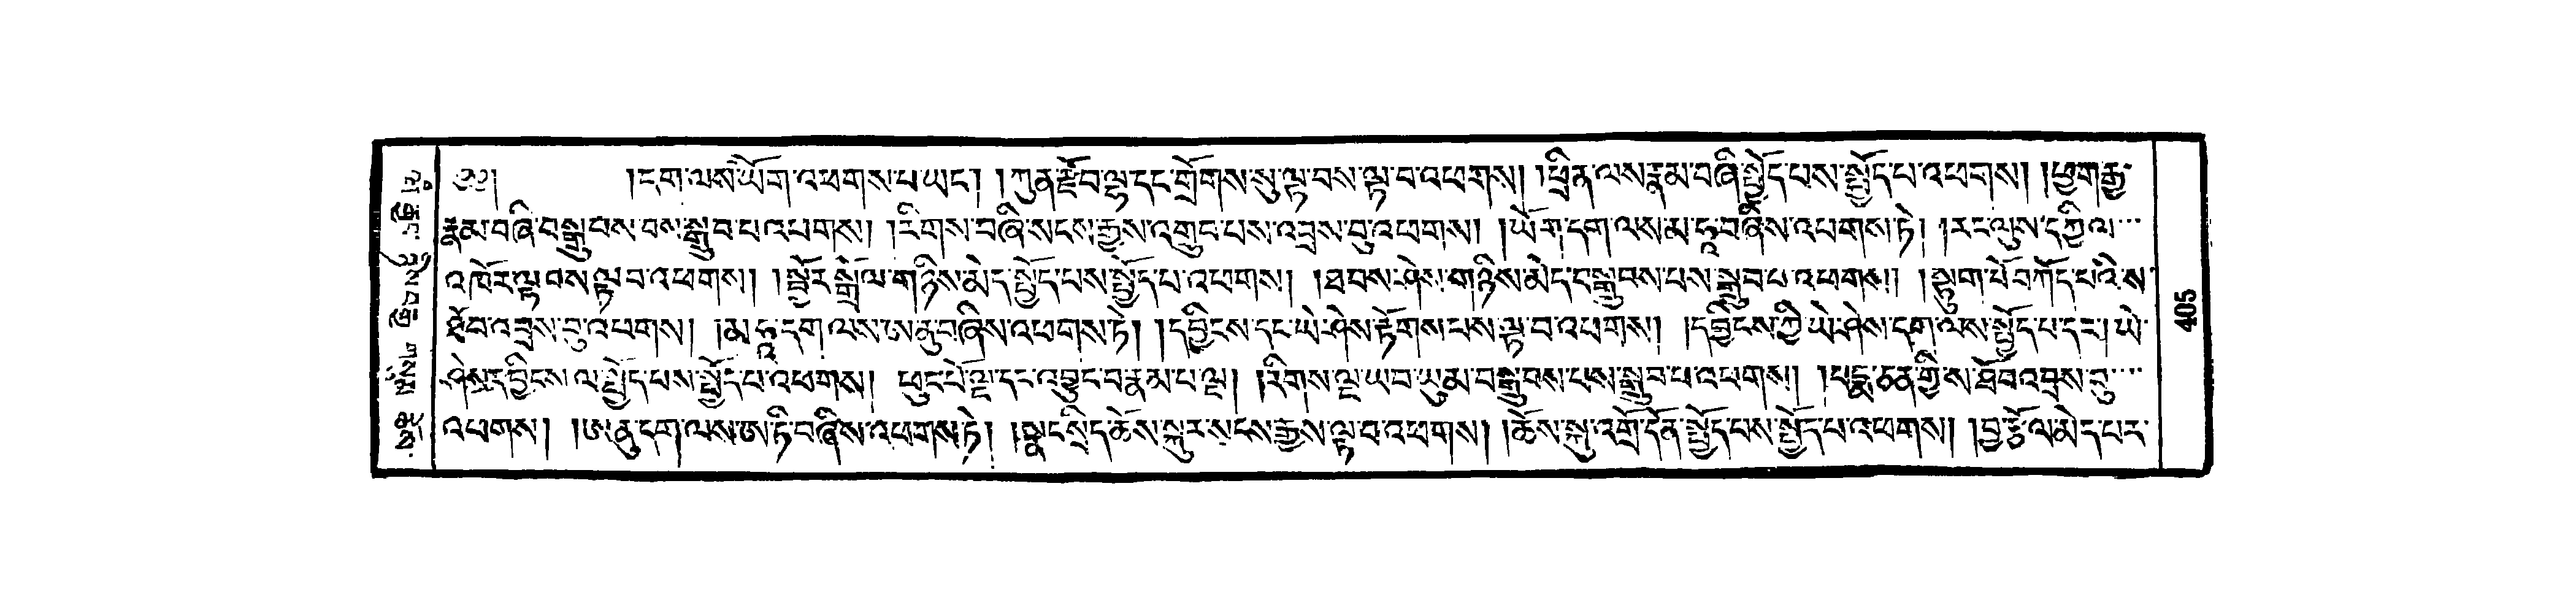 ༄༅། །དག་ལས་ཡོག་འཕགས་པ་ཡང་། །ཀུན་རྫོབ་ལྷ་དང་གྲོགས་སུ་ལྟ་བས་ལྟ་བ་འཕགས། །ཕྲིན་ལས་རྣམ་བཞི་སྤྱོད་པས་སྤྱོད་པ་འཕགས། །ཕྱག་རྒྱ་
རྣམ་བཞི་བསྒྲུབས་བས་སྒྲུབ་པ་འཕགས། །རིགས་བཞི་སངས་རྒྱས་འགྲུང་པས་འབྲས་བུ་འཕགས། །ཡོག་དག་ལས་མ་ཧཱ་བཞིས་འཕགས་ཏེ། །རང་ལུས་དཀྱིལ་
འཁོར་ལྟ་བས་ལྟ་བ་འཕགས། །སྦྱོར་སྒྲོལ་གཉིས་མེད་སྤྱོད་པས་སྤྱོད་པ་འཕགས། །ཐབས་ཤེས་གཉིས་མེད་བསྒྲུབས་པས་སྒྲུབ་པ་འཕགས། །སྟུག་པོ་བཀོད་པའི་ས་
ཐོབ་འབྲས་བུ་འཕགས། །མ་ཧཱ་དག་ལས་ཨ་ནུ་བཞིས་འཕགས་ཏེ། །དབྱིངས་དང་ཡེ་ཤེས་རྟོགས་པས་ལྟ་བ་འཕགས། །དབྱིངས་ཀྱི་ཡེ་ཤེས་དག་ལས་སྤྱོད་པ་དང་། ཡེ་
ཤེས་དབྱིངས་ལ་སྤྱོད་པས་སྤྱོད་པ་འཕགས། ཕུང་པོ་ལྔ་དང་འབྱུང་བ་རྣམ་པ་ལྔ། །རིགས་ལྔ་ཡབ་ཡུམ་བསྒྲུབས་པས་སྒྲུབ་པ་འཕགས། །པདྨ་ཅན་གྱི་ས་ཐོབ་འབྲས་བུ་
འཕགས། །ཨ་ནུ་དག་ལས་ཨ་ཏི་བཞིས་འཕགས་ཏེ། །སྣང་སྲིད་ཆོས་སྐུར་སངས་རྒྱས་ལྟ་བ་འཕགས། །ཆོས་སྐུ་འགྲོ་དོན་སྤྱོད་པས་སྤྱོད་པ་འཕགས། །བྱ་རྩོལ་མེད་པར་
405